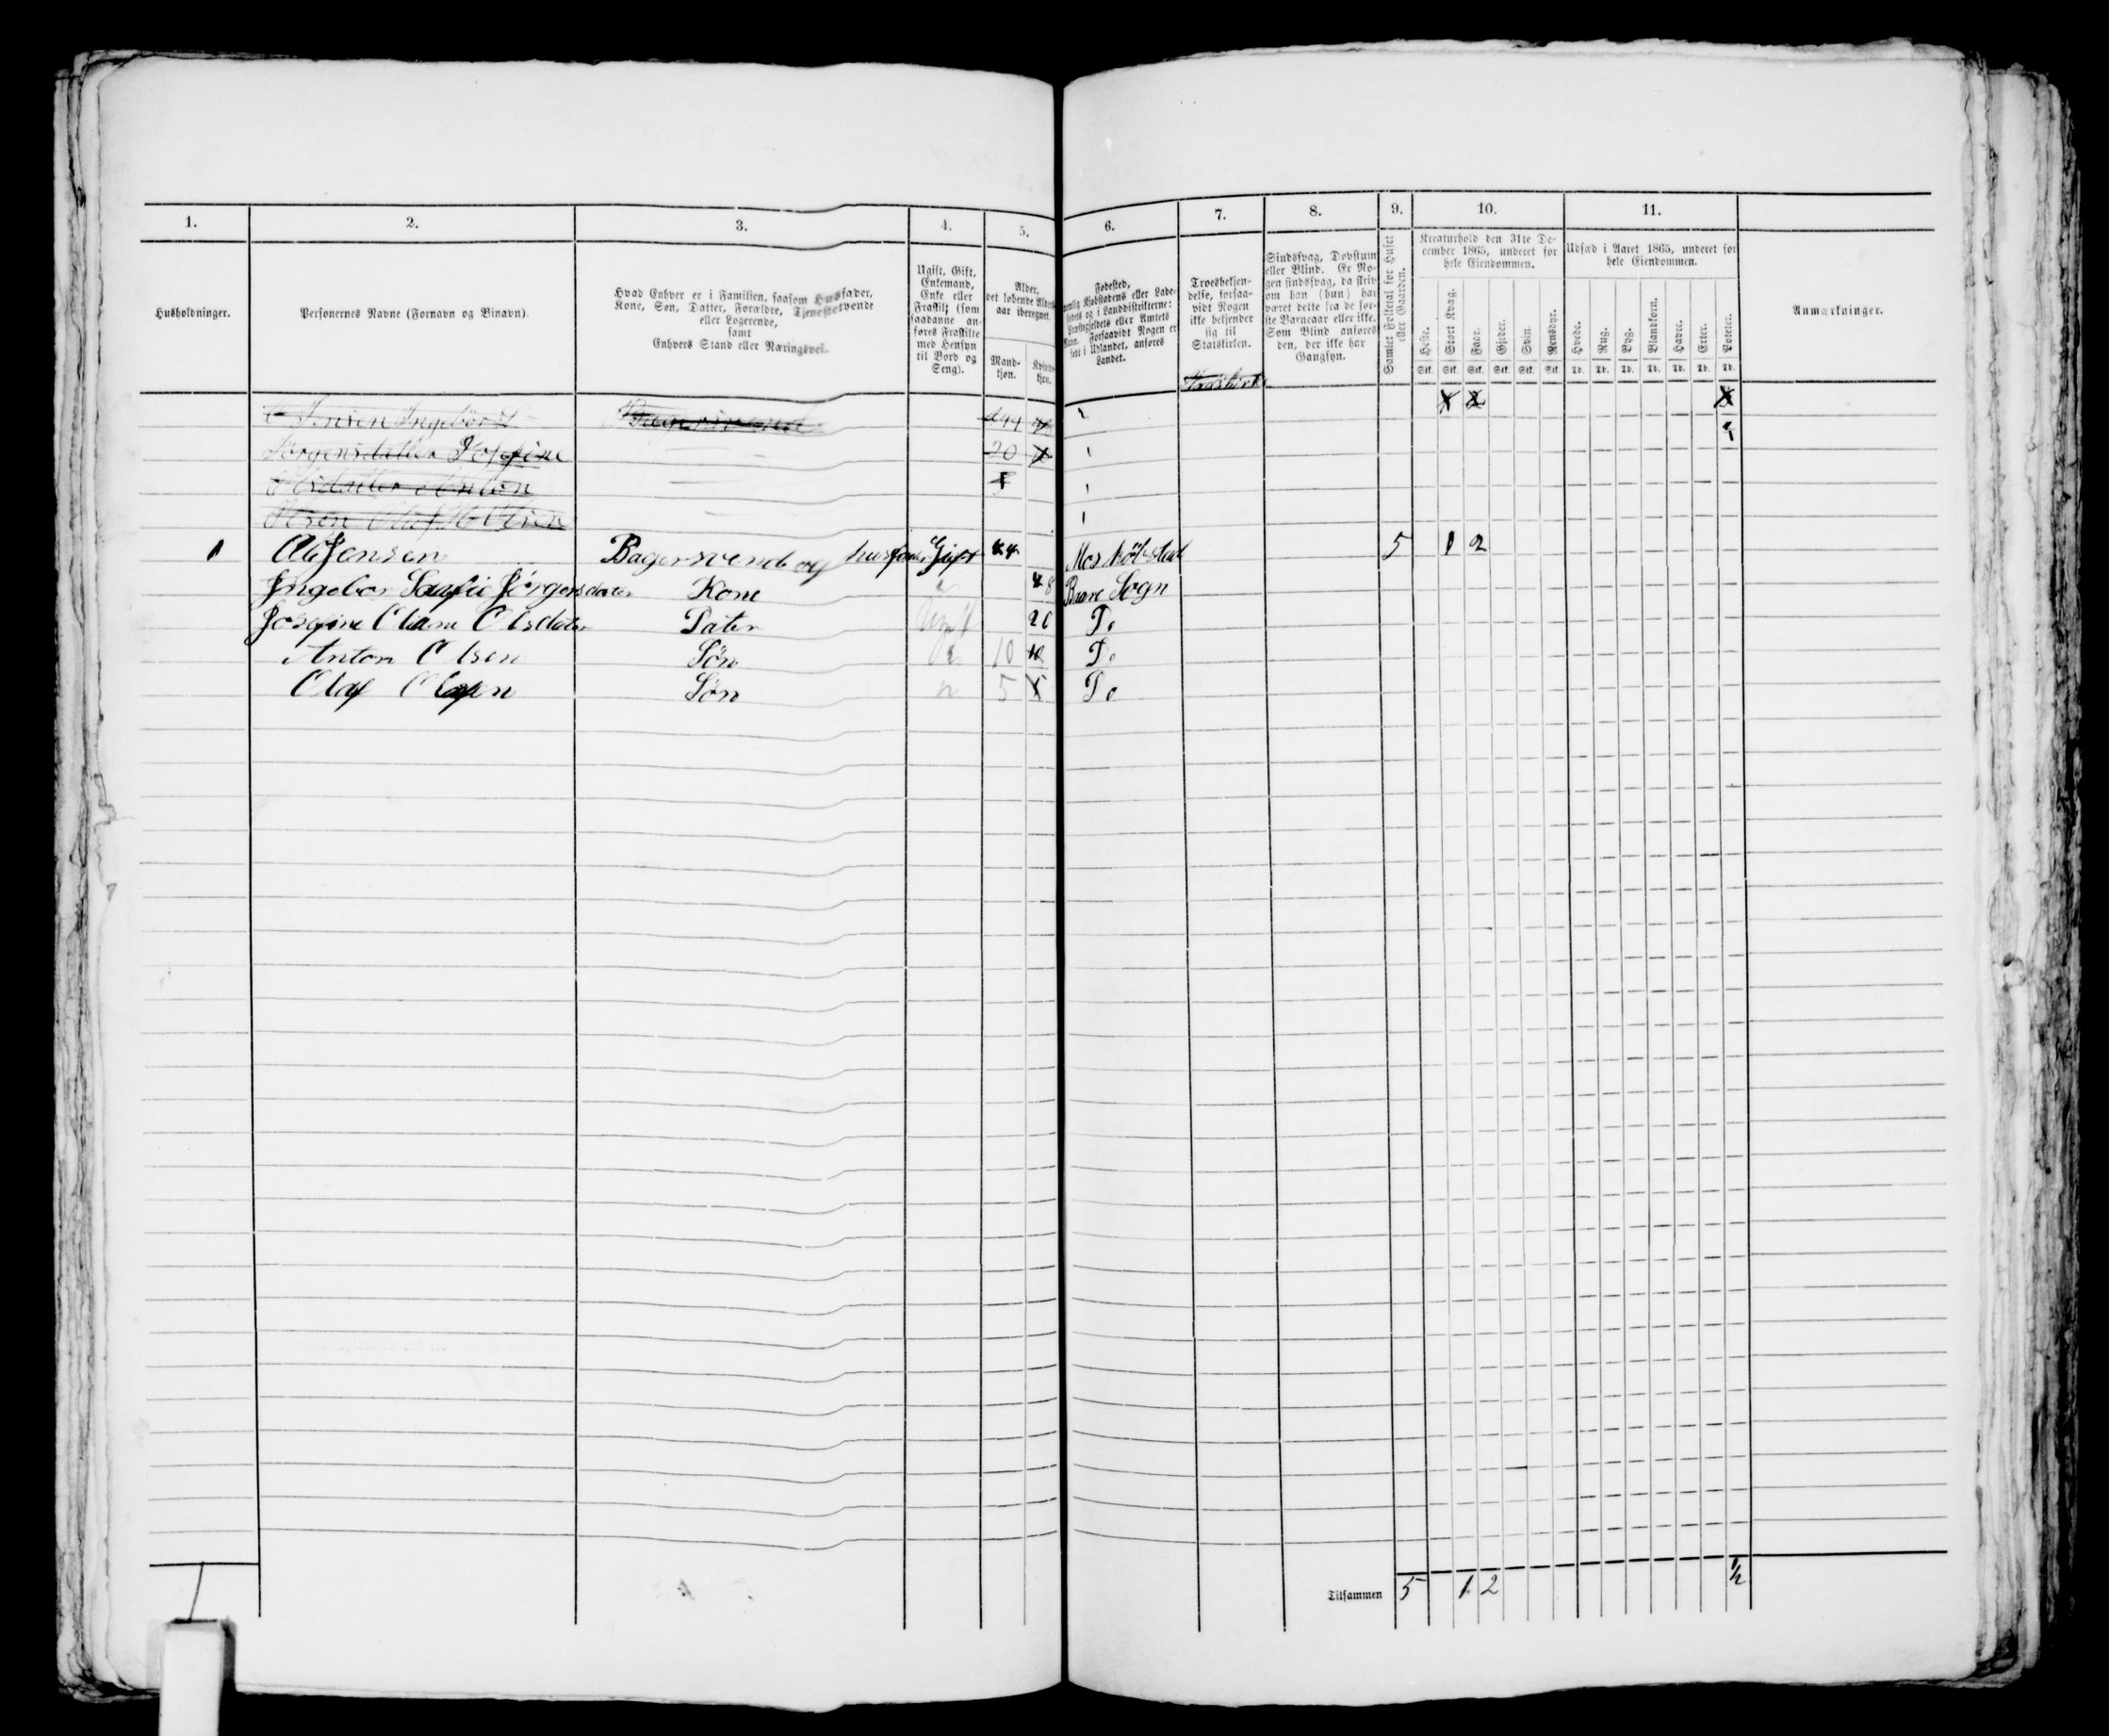 1. 2. 3. 4. 5. 6. 7. 8. 9. 10. 11.
Husholdninger.
Personernes Navne (Fornavn og Binavn).
Hvad Enhver er i Familien, saasom Husfader,
Kone, Søn, Datter, Forældre, Tjenestetyende
eller Logerende,
samt
Enhvers Stand eller Næringsvei.
Ugift, Gift,
Enkemand,
Enke eller
Fraskilt (som
saadanne an-
føres Fraskilte
med Hensyn
til Bord og
Seng).
Alder,
det løbende Alders-
aar iberegnet.
Mand-
kjøn.
Kvinde-
kjøn.
Fødested,
nemlig Kjøbstadens eller Lade-
stedets og i Landdistrikterne:
Præstegjeldets eller Amtets
Navn. Forsaavidt Nogen er
født i Udlandet, anføres
Landet.
Troesbekjen-
delse, forsaa-
vidt Nogen
ikke bekjender
sig til
Statskirken.
Sindssvag, Døvstum
eller Blind. Er No-
gen sindssvag, da skriv
om han (hun) har
været dette fra de før-
ste Barneaar eller ikke.
Som Blind anføres
den, der ikke har
Gangsyn.
Samlet Folketal for Huset
eller Gaarden.
Kreaturhold den 31te De-
cember 1865, underet for
hele Eiendommen.
Heste. Stort Kvæg. Faar. Gjeder. Svin. Rensdyr.
Stk. Stk. Stk. Stk. Stk. Stk.
Udsæd i Aaret 1865, underet for
hele Eiendommen.
Hvede. Rug. Byg. Blandkorn. Havre. Erter. Poteter.
Td. Td. Td. Td. Td. Td. Td.
Anmærkninger.
Jensen Ingebør Bagersvend 44
Jørgensdatter Josefine 20
1 Ole Jensen Bagersvend og husfader Gift 44 Mos 5 1 2
Ingebor Jørgensdater Kone 48 Sogn
Josefine Oliane Olsdater Dater Ugift 20 Do
Anton Olsen Søn 10 10 Do
Olaf Olsen Søn 5 Do
1
Tilsammen 5 1 2 ½